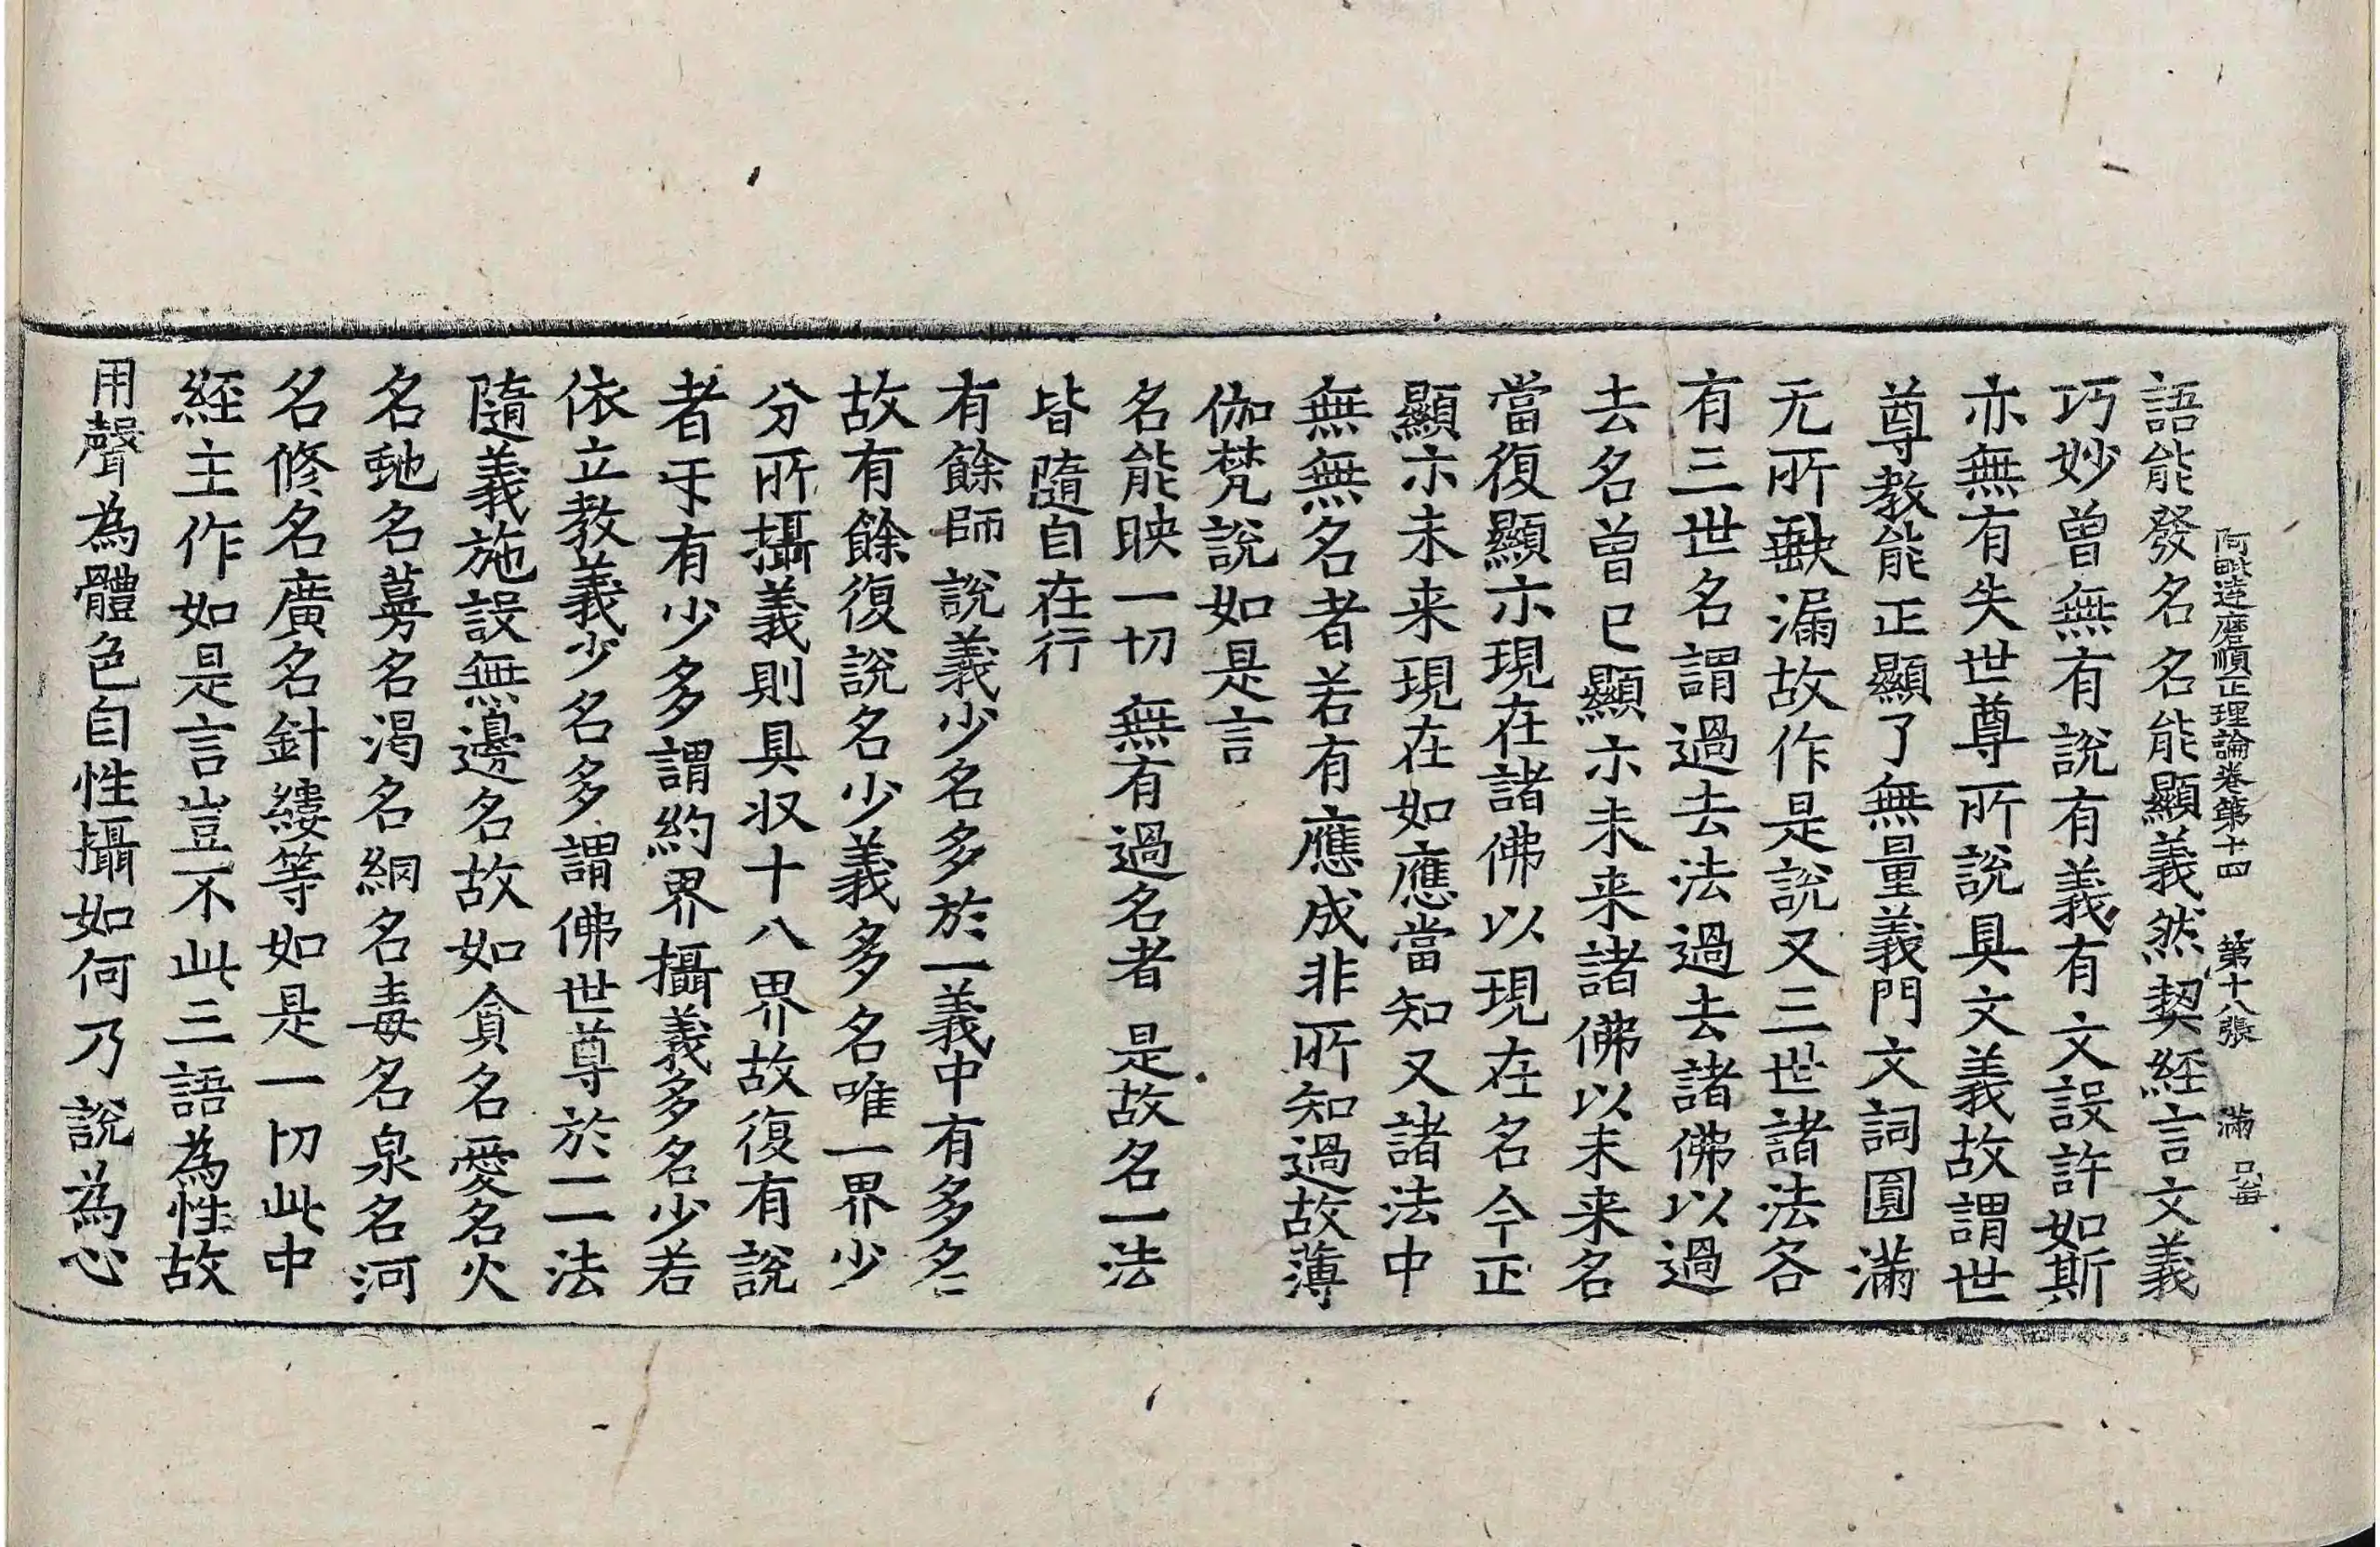 阿毗達磨順正理論卷第十四 第十八張 滿
語能發名名能顯義然契經言文義
巧妙曾無有說有義有文設許如斯
亦無有失世尊所說具文義故謂世
尊教能正顯了無量義門文詞圓滿
无所缺漏故作是說又三世諸法各
有三世名謂過去法過去諸佛以過
去名曾已顯示未来諸佛以未来名
當復顯示現在諸佛以現在名今正
顯示未来現在如應當知又諸法中
無無名者若有應成非所知過故薄
伽梵說如是言
名能映一切 無有過名者 是故名一法
皆隨自在行
有餘師說義少名多於一義中有多名
故有餘復說名少義多名唯一界少
分所攝義則具收十八界故復有說
者㸦有少多謂約界攝義多名少若
依立教義少名多謂佛世尊於一一法
隨義施設無邊名故如貪名愛名火
名虵名蔓名渴名網名毒名泉名河
名修名廣名針縷等如是一切此中
經主作如是言豈不此三語為性故
用聲為體色自性攝如何乃說為心